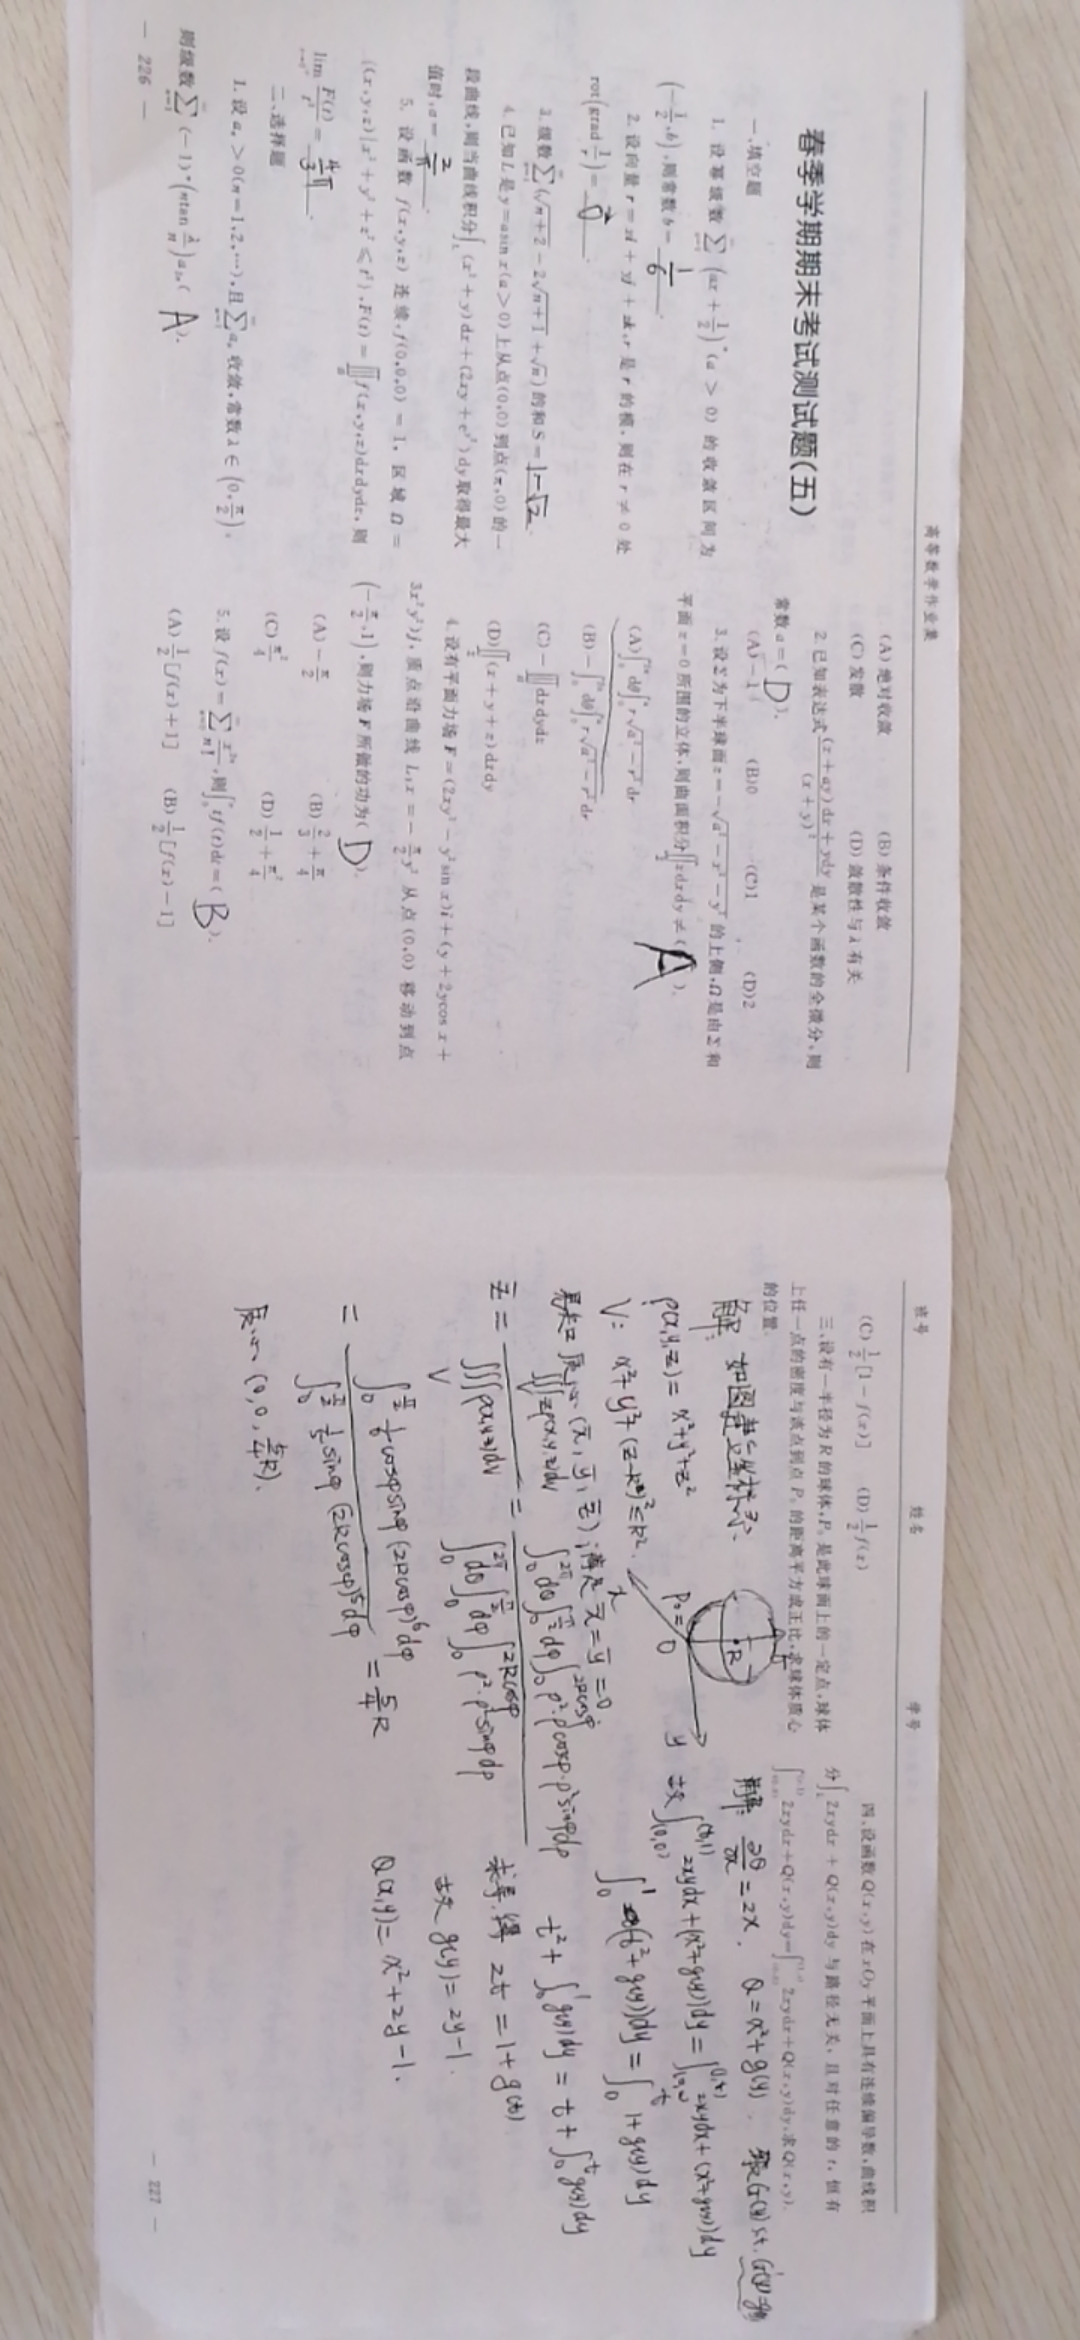 高等数学作业集
春季学期期末考试测试题(五)
一、填空题
1. 设幂级数 ∑(ax + 1/2)^n (a > 0) 的收敛区间为
(-1/2, b), 则常数 b = 1/6 .
2. 设向量 r = xi + yj + zk, r 是 r 的模, 则在 r ≠ 0 处
rot(grad 1/r) = 0⃗ .
3. 级数 ∑(√(n+2) - 2√(n+1) + √n) 的和 S = 1-√2 .
4. 已知 L 是 y = asin x (a > 0) 上从点(0,0)到点(π,0)的一
段曲线, 则当曲线积分∫_L (x² + y)dx + (2xy + e^{y²})dy 取得最大
值时, a = 2/π .
5. 设函数 f(x,y,z) 连续, f(0,0,0) = 1, 区域 Ω =
{(x,y,z)|x² + y² + z² ≤ t²}, F(t) = ∭_Ω f(x,y,z)dxdydz, 则
lim F(t)/t³ = 4/3 π .
二、选择题
1. 设 a_n > 0 (n = 1,2,…), 且 ∑a_n 收敛, 常数 λ ∈ (0, π/2),
则级数 ∑_{n=1} (-1)^n (ntan λ/n) a_{2n} ( A ).
— 226 —
(A) 绝对收敛 (B) 条件收敛
(C) 发散 (D) 敛散性与 λ 有关
2. 已知表达式 ((x + ay)dx + ydy)/(x + y)² 是某个函数的全微分, 则
常数 a = ( D ).
(A) -1 (B) 0 (C) 1 (D) 2
3. 设 Σ 为下半球面 z = -√(a² - x² - y²) 的上侧, Ω 是由 Σ 和
平面 z = 0 所围的立体, 则曲面积分∬_Σ zdxdy ≠ ( A ).
(A) ∫_0^{2π} dθ ∫_0^a r√(a² - r²) dr
(B) -∫_0^{2π} dθ ∫_0^a r√(a² - r²) dr
(C) -∭_Ω dxdydz
(D) ∬_Σ (x + y + z)dxdy
4. 设有平面力场 F = (2xy³ - y²sin x)i + (y + 2ycos x +
3x²y²)j, 质点沿曲线 L: x = -π/2 y² 从点 (0,0) 移动到点
(-π/2, 1), 则力场 F 所做的功为( D ).
(A) -π/2 (B) 2/3 + π/4
(C) π²/4 (D) 1/2 + π²/4
5. 设 f(x) = ∑ x^{2n}/n!, 则∫_0^x tf(t)dt = ( B ).
(A) 1/2 [f(x) + 1] (B) 1/2 [f(x) - 1]
班号 姓名 学号
(C) 1/2 [1 - f(x)] (D) 1/2 f(x)
三、设有一半径为 R 的球体, P₀ 是此球面上的一定点, 球体
上任一点的密度与该点到点 P₀ 的距离平方成正比, 求球体质心
的位置.
解: 如图建立坐标系.
z R P₀= O y x
ρ(x,y,z) = x²+y²+z²
V: x²+y²+(z-R)² ≤ R².
易知 质心 (x̄, ȳ, z̄) 满足 x̄ = ȳ = 0
z̄ = ∭_V zρ(x,y,z)dv / ∭_V ρ(x,y,z)dv = ∫_0^{2π} dθ ∫_0^{π/2} dφ ∫_0^{2Rcosφ} ρ²·ρcosφ·ρ²sinφdρ / ∫_0^{2π} dθ ∫_0^{π/2} dφ ∫_0^{2Rcosφ} ρ²·ρ²sinφdρ
= ∫_0^{π/2} 1/6 cosφsinφ (2Rcosφ)⁶dφ / ∫_0^{π/2} 1/5 sinφ (2Rcosφ)⁵dφ = 5/4 R
质心 (0, 0, 5/4 R).
四、设函数 Q(x,y) 在 xOy 平面上具有连续偏导数, 曲线积
分∫_L 2xydx + Q(x,y)dy 与路径无关, 且对任意的 t, 恒有
∫ 2xydx + Q(x,y)dy = ∫ 2xydx + Q(x,y)dy, 求 Q(x,y).
解: ∂Q/∂x = 2x. Q = x²+g(y). G(y) s.t. G'(y)=g(y)
故 ∫_{(0,0)}^{(t,1)} 2xydx + (x²+g(y))dy = ∫_{(0,0)}^{(1,t)} 2xydx + (x²+g(y))dy
∫_0^1 (t²+g(y))dy = ∫_0^t 1+g(y)dy
t² + ∫_0^1 g(y)dy = t + ∫_0^t g(y)dy
求导, 得 2t = 1+g(t)
故 g(y) = 2y-1.
Q(x,y) = x²+2y-1.
— 227 —